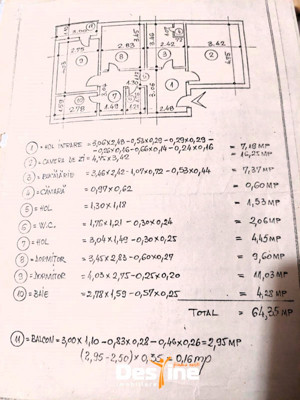 3,00
2.75
2.83
2.42
3.42
11
9
8
3
2
1
10
7
2.78
1.49
2.48
1 = HOL INTRARE = 3,06x2,48-0,53x0,29-0,29x0,29-
-0,26x0,16-0,66x0,14-0,24x0,16 = 7,18 MP
2 = CAMERA DE ZI = 4,75x3,42 = 16,25 MP
3 = BUCĂTĂRIE = 3,46x2,42-1,07x0,72-0,53x0,44 = 7,37 MP
4 = CĂMARĂ = 0,97x0,62 = 0,60 MP
5 = HOL = 1,30x1,18 = 1,53 MP
6 = W.C. = 1,76x1,21-0,30x0,24 = 2,06 MP
7 = HOL = 3,04x1,49-0,30x0,25 = 4,45 MP
8 = DORMITOR = 3,45x2,83-0,60x0,27 = 9,60 MP
9 = DORMITOR = 4,03x2,75-0,25x0,20 = 11,03 MP
10 = BAIE = 2,78x1,59-0,57x0,25 = 4,28 MP
TOTAL = 64,35 MP
11 = BALCON = 3,00x1,10-0,83x0,28-0,46x0,26 = 2,95 MP
(2,95-2,50)x0,35 = 0,16 mp
Destine